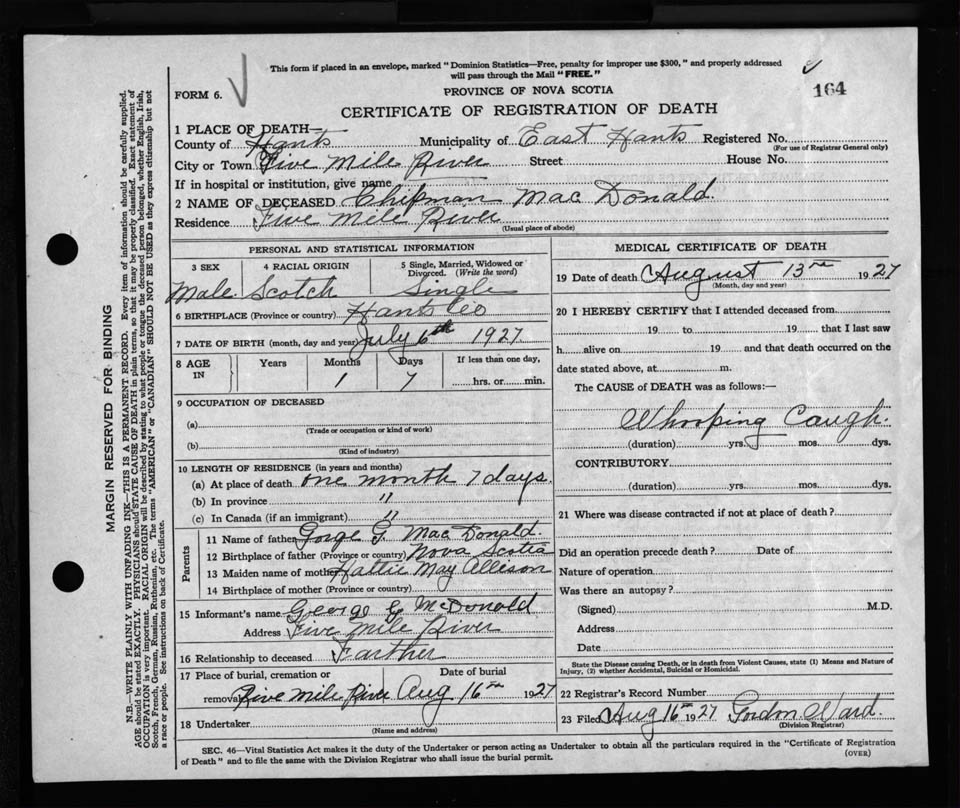 This form if placed in an envelope, marked "Dominion Statistics—Free, penalty for improper use $300," and properly addressed
will pass through the Mail "FREE."
164
FORM 6.
PROVINCE OF NOVA SCOTIA
CERTIFICATE OF REGISTRATION OF DEATH
1 PLACE OF DEATH—
County of Hants Municipality of East Hants Registered No.
(For use of Registrar General only)
City or Town Five Mile River Street House No.
If in hospital or institution, give name
2 NAME OF DECEASED Chipman Mac Donald
Residence Five Mile River
(Usual place of abode)
PERSONAL AND STATISTICAL INFORMATION
3 SEX 4 RACIAL ORIGIN 5 Single, Married, Widowed or Divorced. (Write the word)
Male Scotch Single
6 BIRTHPLACE (Province or country) Hants Co
7 DATE OF BIRTH (month, day and year) July 6th 1927
8 AGE IN Years Months Days If less than one day,
1 7 hrs. or min.
9 OCCUPATION OF DECEASED
(a)
(Trade or occupation or kind of work)
(b)
(Kind of industry)
10 LENGTH OF RESIDENCE (in years and months)
(a) At place of death one month 7 days.
(b) In province "
(c) In Canada (if an immigrant) "
Parents
11 Name of father Gorge G. Mac Donald
12 Birthplace of father (Province or country) Nova Scotia
13 Maiden name of mother Hattie May Allison
14 Birthplace of mother (Province or country)
15 Informant's name George G McDonald
Address Five Mile River
16 Relationship to deceased Farther
17 Place of burial, cremation or Date of burial
removal Five Mile River Aug 16th 1927
18 Undertaker
(Name and address)
MEDICAL CERTIFICATE OF DEATH
19 Date of death August 13th 1927
(Month, day and year)
20 I HEREBY CERTIFY that I attended deceased from
19 to 19 that I last saw
h alive on 19 and that death occurred on the
date stated above, at m.
The CAUSE of DEATH was as follows:—
Whooping Caugh.
(duration) yrs. mos. dys.
CONTRIBUTORY
(duration) yrs. mos. dys.
21 Where was disease contracted if not at place of death?
Did an operation precede death? Date of
Nature of operation
Was there an autopsy?
(Signed) M.D.
Address
Date
State the Disease causing Death, or in death from Violent Causes, state (1) Means and Nature of
Injury, (2) whether Accidental, Suicidal or Homicidal.
22 Registrar's Record Number
23 Filed Aug 16th 1927 Gordon Ward.
(Division Registrar)
SEC. 46—Vital Statistics Act makes it the duty of the Undertaker or person acting as Undertaker to obtain all the particulars required in the "Certificate of Registration
of Death" and to file the same with the Division Registrar who shall issue the burial permit.
(OVER)
MARGIN RESERVED FOR BINDING
N.B.—WRITE PLAINLY WITH UNFADING INK—THIS IS A PERMANENT RECORD. Every item of information should be carefully supplied.
AGE should be stated EXACTLY. PHYSICIANS should STATE CAUSE OF DEATH in plain terms, so that it may be properly classified. Exact statement of
OCCUPATION is very important. RACIAL ORIGIN will be described by stating to what people or tongue the deceased person belonged, whether English, Irish,
Scotch, French, German, Russian, Ruthenian, etc. The terms "AMERICAN" or "CANADIAN" SHOULD NOT BE USED as they express citizenship but not
a race or people. See instructions on back of Certificate.